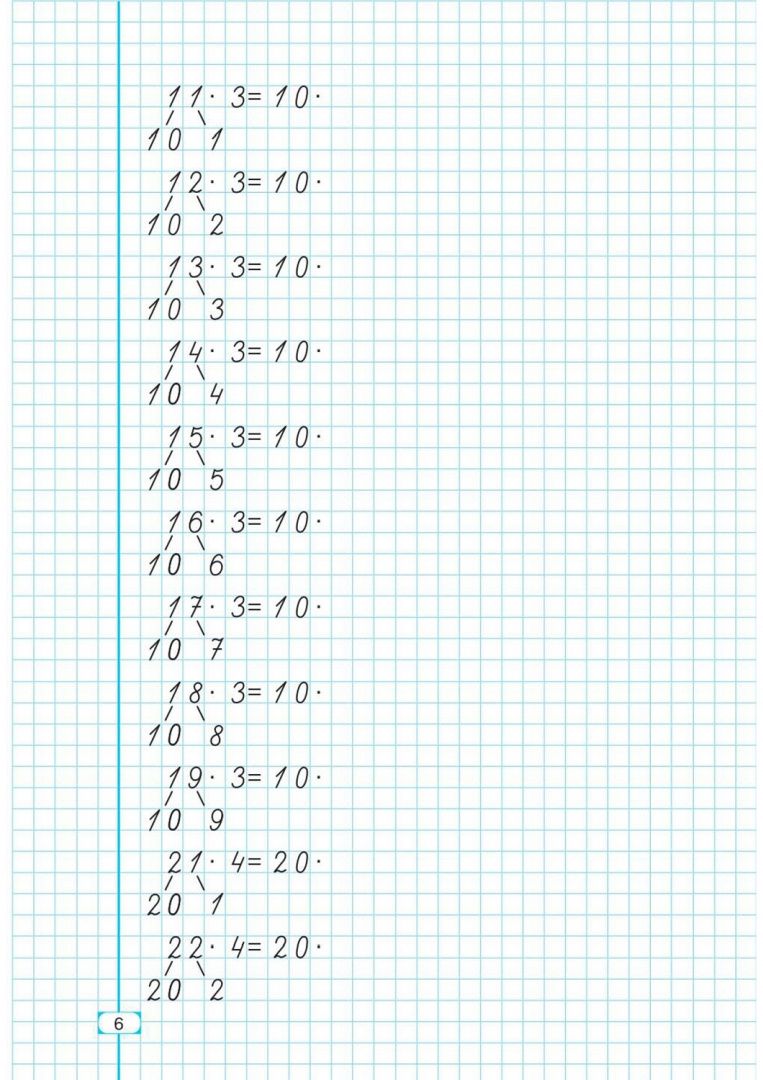 11· 3= 10·
10 1
12· 3= 10·
10 2
13· 3= 10·
10 3
14· 3= 10·
10 4
15· 3= 10·
10 5
16· 3= 10·
10 6
17· 3= 10·
10 7
18· 3= 10·
10 8
19· 3= 10·
10 9
21· 4= 20·
20 1
22· 4= 20·
20 2
6